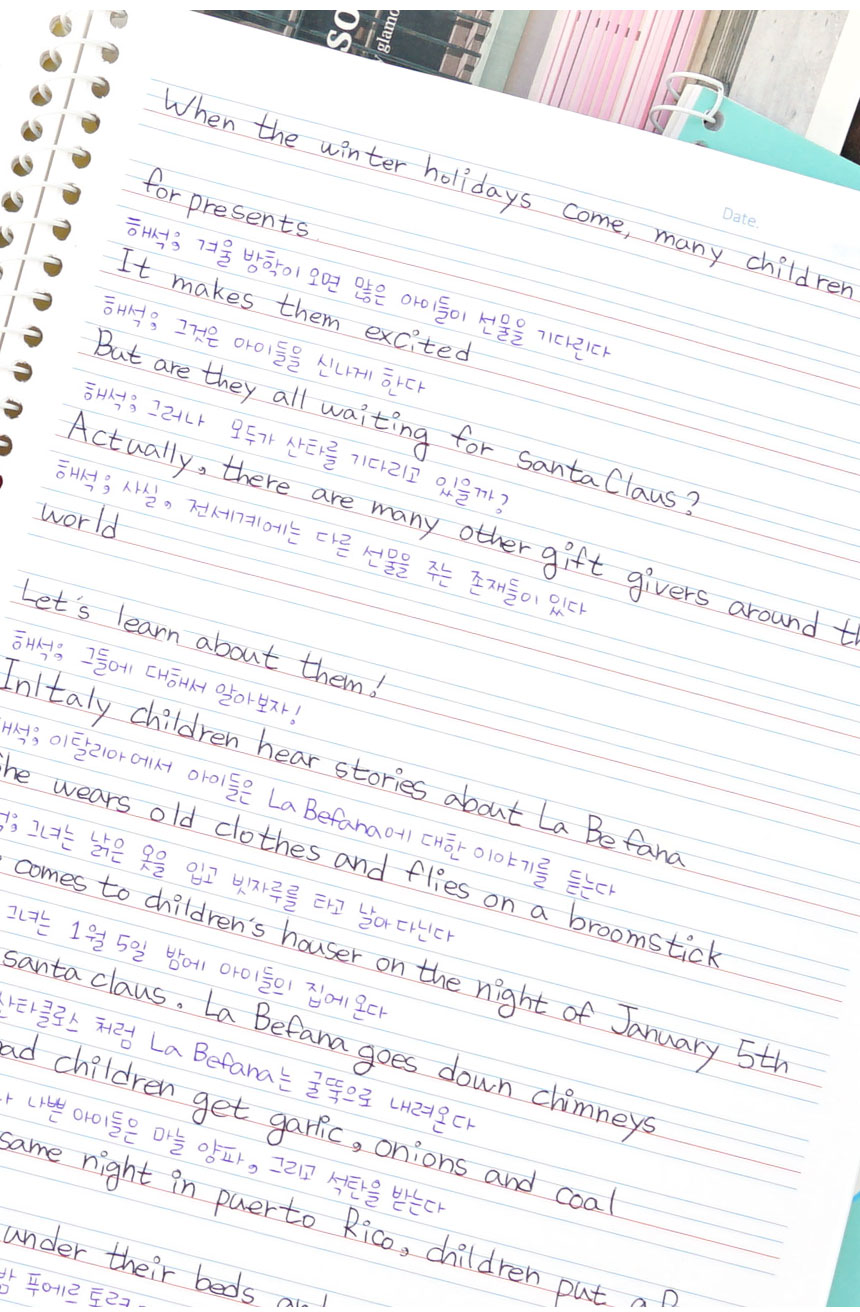 so
glamo
Date.
When the winter holidays come, many children
for presents.
해석; 겨울 방학이 오면 많은 아이들이 선물을 기다린다
It makes them excited
해석; 그것은 아이들을 신나게 한다
But are they all waiting for Santa Claus?
해석; 그러나 모두가 산타를 기다리고 있을까?
Actually, there are many other gift givers around th
해석; 사실, 전세계에는 다른 선물을 주는 존재들이 있다
world
Let's learn about them!
해석; 그들에 대해서 알아보자!
InItaly children hear stories about La Befana
해석; 이탈리아에서 아이들은 La Befana에 대한 이야기를 듣는다
he wears old clothes and flies on a broomstick
석; 그녀는 낡은 옷을 입고 빗자루를 타고 날아다닌다
comes to children's houser on the night of January 5th
그녀는 1월 5일 밤에 아이들의 집에 온다
santa claus. La Befana goes down chimneys
산타클로스 처럼 La Befana는 굴뚝으로 내려온다
ad children get garlic, onions and coal
나쁜 아이들은 마늘 양파, 그리고 석탄을 받는다
same night in puerto Rico, children put a
under their beds an
밤 푸에르토리코